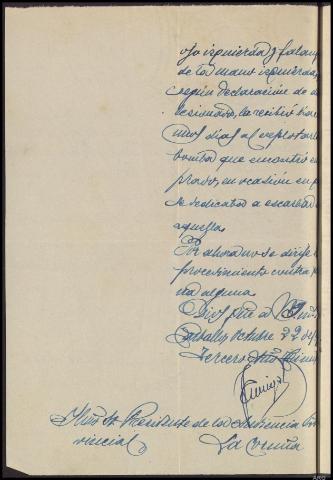 ojo izquierdo y falan
de la mano izquierda,
según declaración de
lesionado, la recibió hac
unos dias al explotarle
bomba que encontró en
prado, en ocasión en q
se dedicaba a escarbar
aquella.
Por ahora no se dirije
procedimiento contra p
na alguna.
Dios gue a V.
Carballo Octubre 22 de
Tercero Año Triun
Iltmo Sr Presidente de la Audiencia Pro
vincial
La Coruña